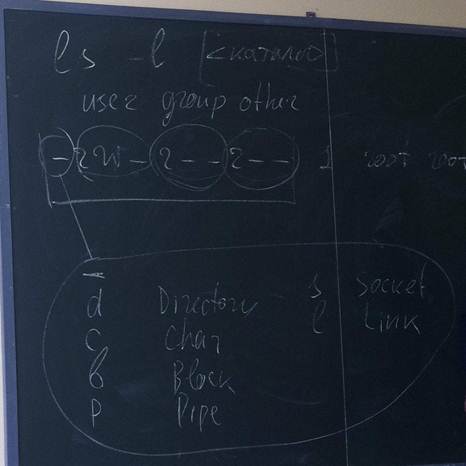 ls -l [<каталог>]
user group other
-rw-r--r-- 1 root root
-
d Directory s Socket
c Char l Link
b Block
p Pipe